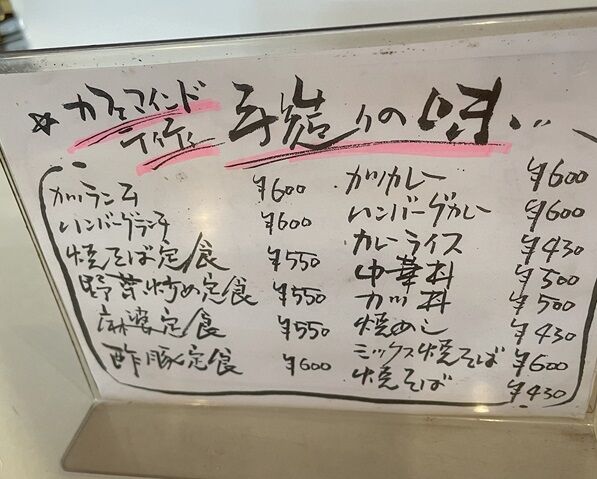 ☆ カフェマインド
ティティ
手造りの味
カツランチ ¥600
ハンバーグランチ ¥600
焼そば定食 ¥550
野菜炒め定食 ¥550
麻婆定食 ¥550
酢豚定食 ¥600
カツカレー ¥600
ハンバーグカレー ¥600
カレーライス ¥430
中華丼 ¥500
カツ丼 ¥500
焼めし ¥430
ミックス焼そば ¥600
焼そば ¥430